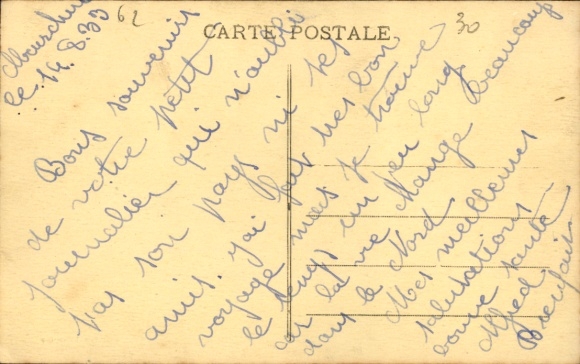 62
CARTE POSTALE
30
le 14.8.33
Bons souvenirs
de votre petit
journalier qui n'oublie
pas son pays ni ses
amis. j'ai fait très bon
voyage mais je trouve
le temps un peu long
car la vie change beaucoup
dans le Nord
Mes meilleures
salutations
bonne santé
Alfred